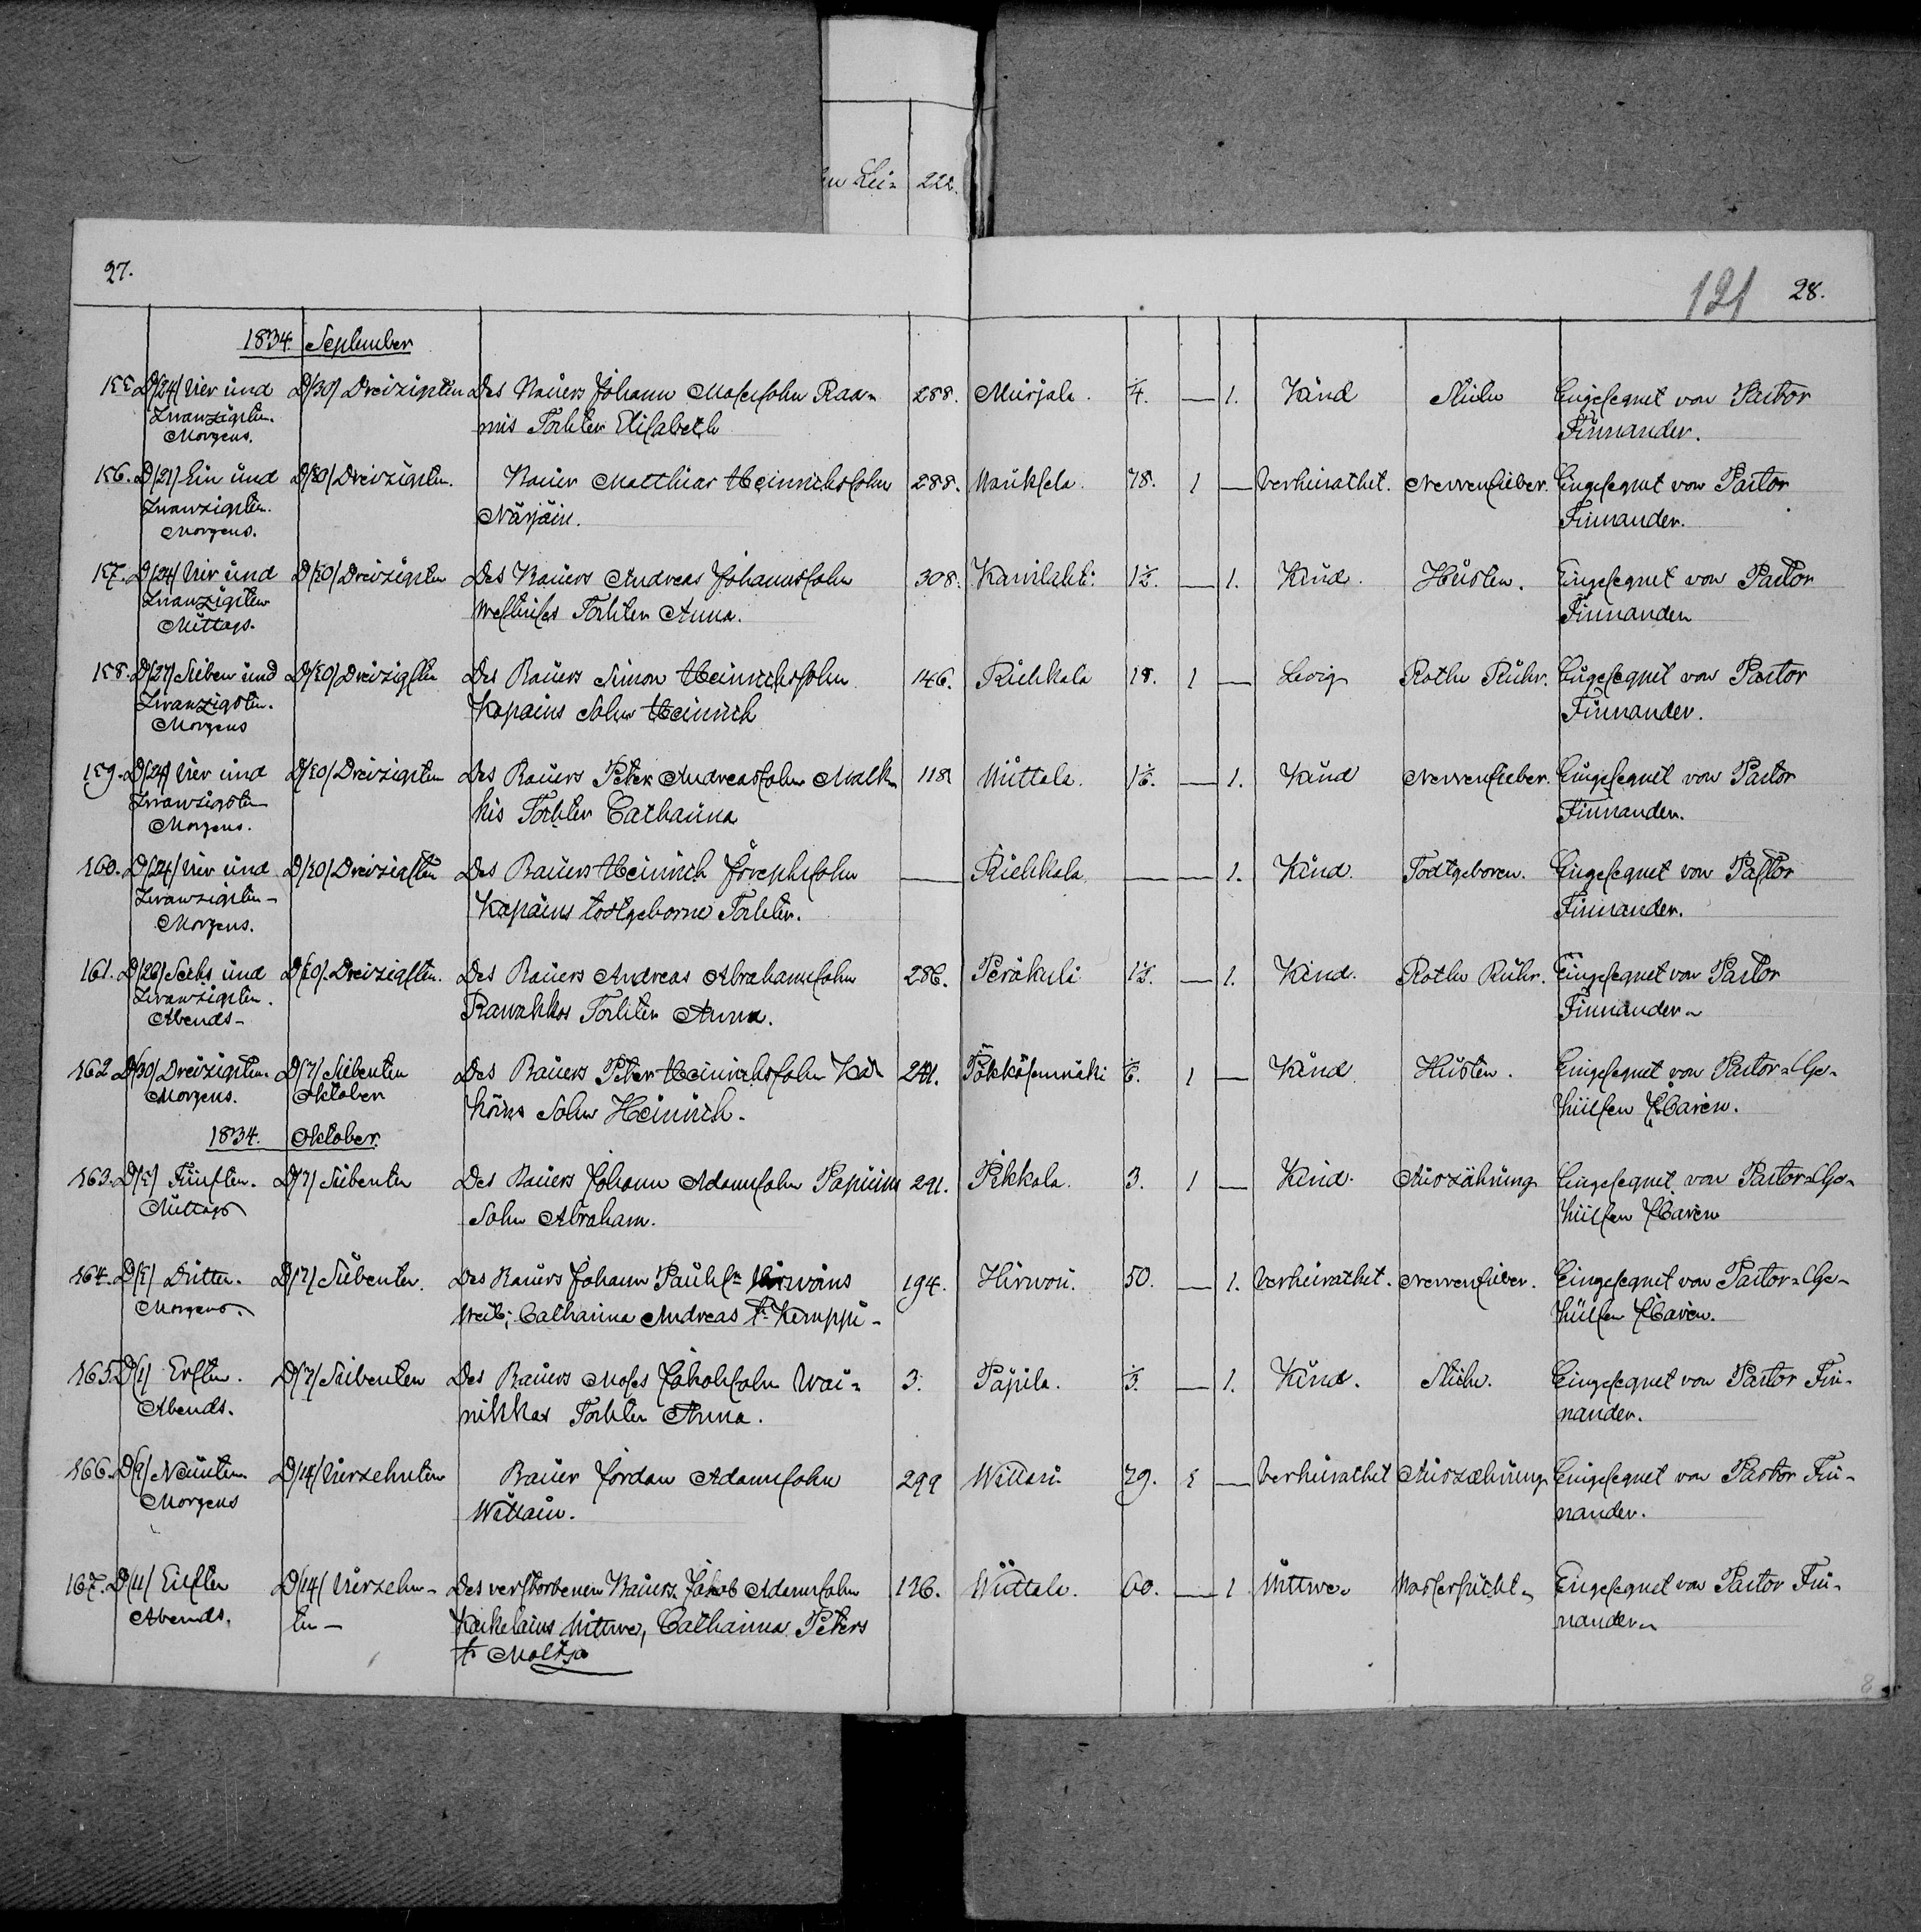 27.
121 28.
1834. September
155. D/24/ Vier und D/30/ Dreizigsten Des Bauers Johann Mosessohn Raa- 288. Murjala. 1/4. — 1. Kind Eingesegnet von Pastor
Zwanzigsten. mis Tochter Elisabeth Finnander.
Morgens.
156. D/21/ Ein und D/30/ Dreizigsten. Bauer Matthias Heinrichssohn 288. 78. 1 — Verheirathet. Nervenfieber. Eingesegnet von Pastor
Zwanzigsten. Närjäin. Finnander.
Morgens.
157. D/24/ Vier und D/30/ Dreizigsten Des Bauers Andreas Johannssohn 308. 1 1/2. — 1. Kind. Husten. Eingesegnet von Pastor
Zwanzigsten Tochter Anna. Finnander
Mittags.
158. D/27/ Sieben und D/30/ Dreizigsten Des Bauers Simon Heinrichssohn 146. Riehkala 18. 1 — Levig Rothe Ruhr. Eingesegnet von Pastor
Zwanzigsten. Kapains Sohn Heinrich Finnander.
Morgens
159. D/24/ Vier und D/30/ Dreizigsten Des Bauers Peter Andreassohn Malk- 118. Wuttala. — 1. Kind Nervenfieber. Eingesegnet von Pastor
Zwanzigsten kis Tochter Catharina Finnander.
Morgens.
160. D/24/ Vier und D/30/ Dreizigsten Des Bauers Heinrich Josephssohn — Riehkala — — 1. Kind. Todtgeboren. Eingesegnet von Pastor
Zwanzigsten- Kapains todtgeborne Tochter. Finnander.
Morgens.
161. D/26/ Sechs und D/30/ Dreizigsten. Des Bauers Andreas Abrahamssohn 286. Peräkuli — 1. Kind. Rothe Ruhr. Eingesegnet von Pastor
Zwanzigsten. Ranahkos Tochter Anna. Finnander.
Abends-
162 D/30/ Dreizigsten. D/7/ Siebenten Des Bauers Peter Heinrichssohn 1 — Kind Husten. Eingesegnet von Pastor-Ge-
Morgens. Oktober Sohn Heinrich. hülfen
1834. Oktober.
163. D/5/ Fünften. D/7/ Siebenten Des Bauers Johann Adamssohn 291. Pikkala. 3. 1 — Kind. Auszährung Eingesegnet von Pastor-Ge-
Mittags Sohn Abraham. hülfen
164. Dritten. D/7/ Siebenten. Des Bauers Johann Hirwöins 194. Hirwoi. 50. — 1. Verheirathet. Nervenfieber. Eingesegnet von Pastor-Ge-
Morgens. Weib, Catharina Andreas t. Kemppi- hülfen
165. D/1/ Ersten. D/7/ Siebenten Des Bauers Moses Jakobssohn Wai- 3. Päpila. 1/3. — 1. Kind. Eingesegnet von Pastor Fin-
Abends. nikkas Tochter Anna. nander.
166. D/9/ Neunten. D/14/ Vierzehnten Bauer Jordan Adamssohn 299 Wittasi 79. — Verheirathet Auszæhrung Eingesegnet von Pastor Fin-
Morgens Wittain. nander.
167. D/11/ Eilften D/14/ Vierzehn- Des verstorbenen Bauers Jakob Adamssohn 136. Wuttala. 60. — 1 Wittwe. Wassersucht. Eingesegnet von Pastor Fin-
Abends. ten- Wittwe, Catharina Peters nander.
t.
222.